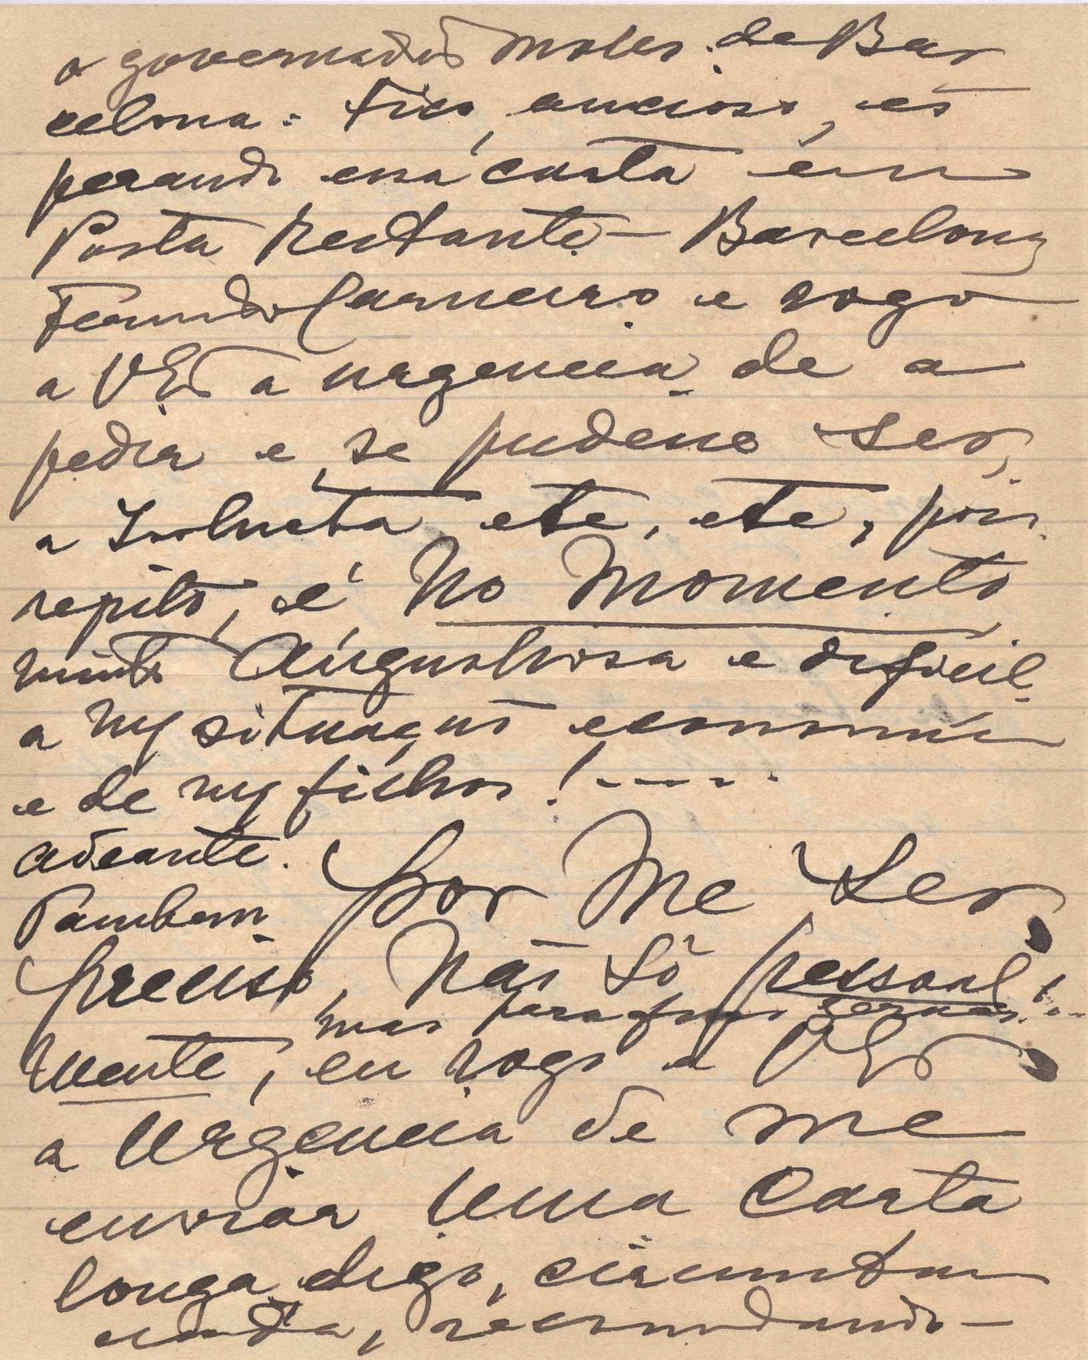 o governador Moles de Bar
celona. Fico, ancioso, es
perando essa carta em
Posta Restante – Barcelona
Carneiro e rogo
a VEx a urgencia de a
pedir e, se pudesse ser,
a etc, etc, pois
repito, é No Momento
muito Angustiosa e dificil
a my situação economica
e de my filhos! - - - -
adeante.
Tambem por Me Ser
preciso, Não Só pessoal
mas para
mente, eu rogo a VEx
a Urgencia de me
enviar Uma Carta
longa digo, circunstan
ciada, recomendando –